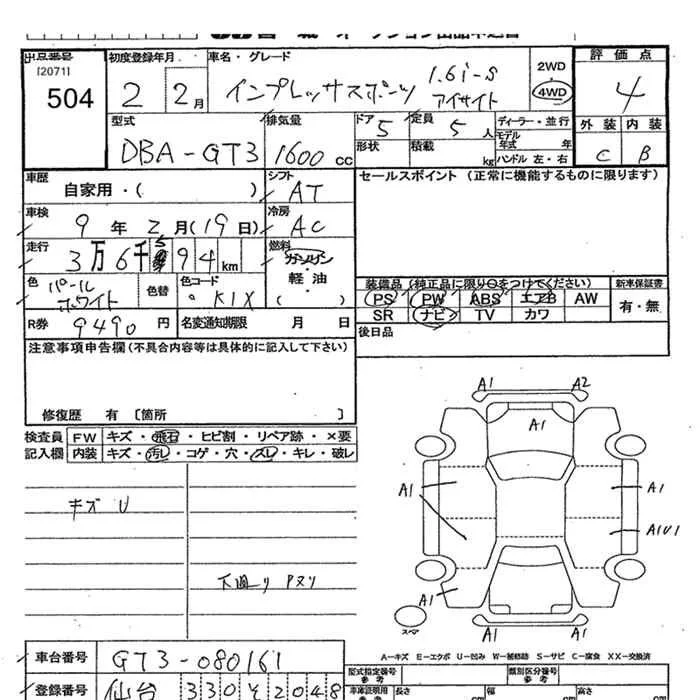 出品番号
[2071]
504
初度登録年月
2 2月
車名・グレード
インプレッサスポーツ 1.6i-S
アイサイト
2WD
4WD
評価点
4
外装 内装
C B
型式
DBA-GT3
排気量
1600 cc
ドア 5
定員 5 人
形状
積載 kg
ディーラー・並行
モデル
年式 年
ハンドル 左・右
車歴
自家用・( )
シフト
AT
車検
9年2月(19日)
冷房
AC
走行
km
燃料
ガソリン
・
軽油
( )
色
パール
ホワイト
色替
色コード
K1X
R券
9490円
名変通知期限 月 日
セールスポイント (正常に機能するものに限ります)
装備品 (純正品に限り○をつけてください)
新車保証書
PS PW ABS エアB AW
SR ナビ TV カワ
有・無
後日品
注意事項申告欄 (不具合内容等は具体的に記入して下さい)
修復歴 有 〔箇所 〕
検査員
記入欄
FW キズ・飛石・ヒビ割・リペア跡・×要
内装 キズ・汚し・コゲ・穴・スレ・キレ・破レ
キズ U
下廻り Pヌリ
A1 A2
A1
A1 A1
A1U1
A1 A1
A1
スペア
A-キズ E-エクボ U-凹み W-補修跡 S-サビ C-腐食 XX-交換済
車台番号
GT3-080161
登録番号
仙台 330 そ 2048
型式指定番号
参考
類別区分番号
参考
車庫証明用
参考
長さ cm
幅 cm
高さ cm